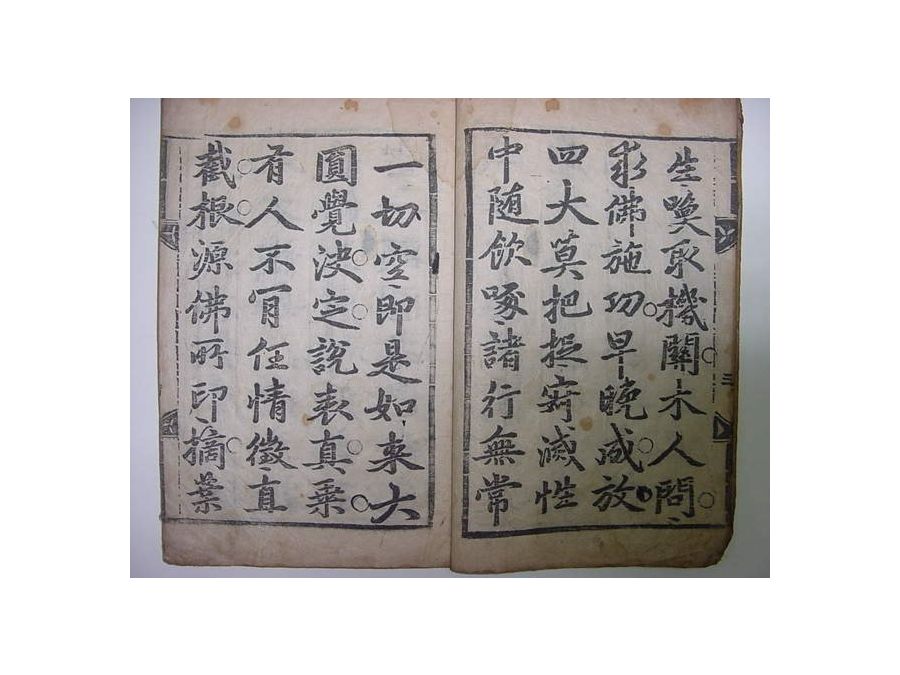 生喚取機關木人問
求佛施功早晚成放
四大莫把捉寂滅性
中随飲啄諸行無常
一切空即是如来大
圓覺決定說表真乗
有人不肎任情徵直
截根源佛所印摘葉
三